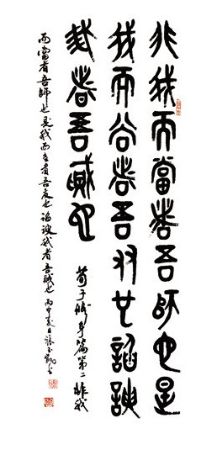 非我而當者吾師也是
我而當者吾友也諂諛
我者吾賊也
荀子修身篇第二 非我
而當者吾師也是我而當者吾友也諂諛我者吾賊也 丙申夏日